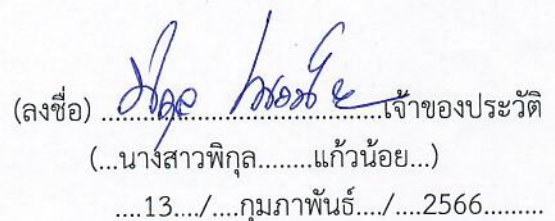 (ลงชื่อ) ...พิกุล แก้วน้อย...เจ้าของประวัติ
(...นางสาวพิกุล........แก้วน้อย...)
....13..../....กุมภาพันธ์..../....2566.........